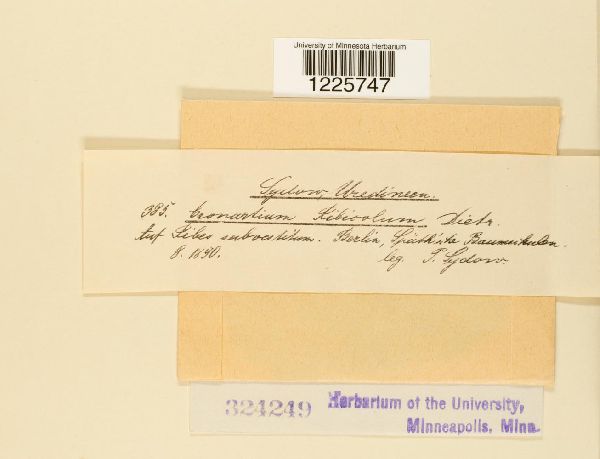 University of Minnesota Herbarium
1225747
Sydow, Uredineen.
385. Cronartium Ribicolum Dietr.
Auf Ribes subvestitum. Berlin, Späth'sche Baumschulen.
8. 1890. leg. P. Sydow
324249 Herbarium of the University,
Minneapolis, Minn.